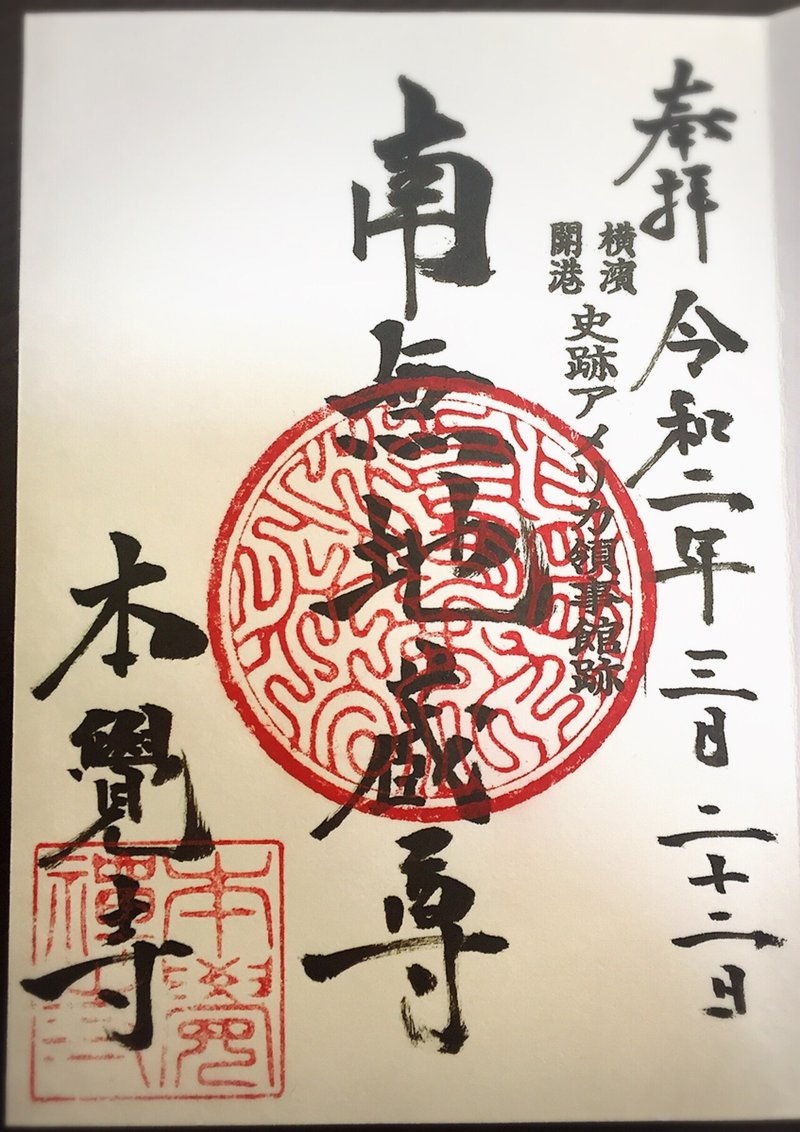 奉拝 令和二年三月二十二日
横濱
開港
史跡アメリカ領事館跡
南無地蔵尊
本覺寺
本覺
禪寺